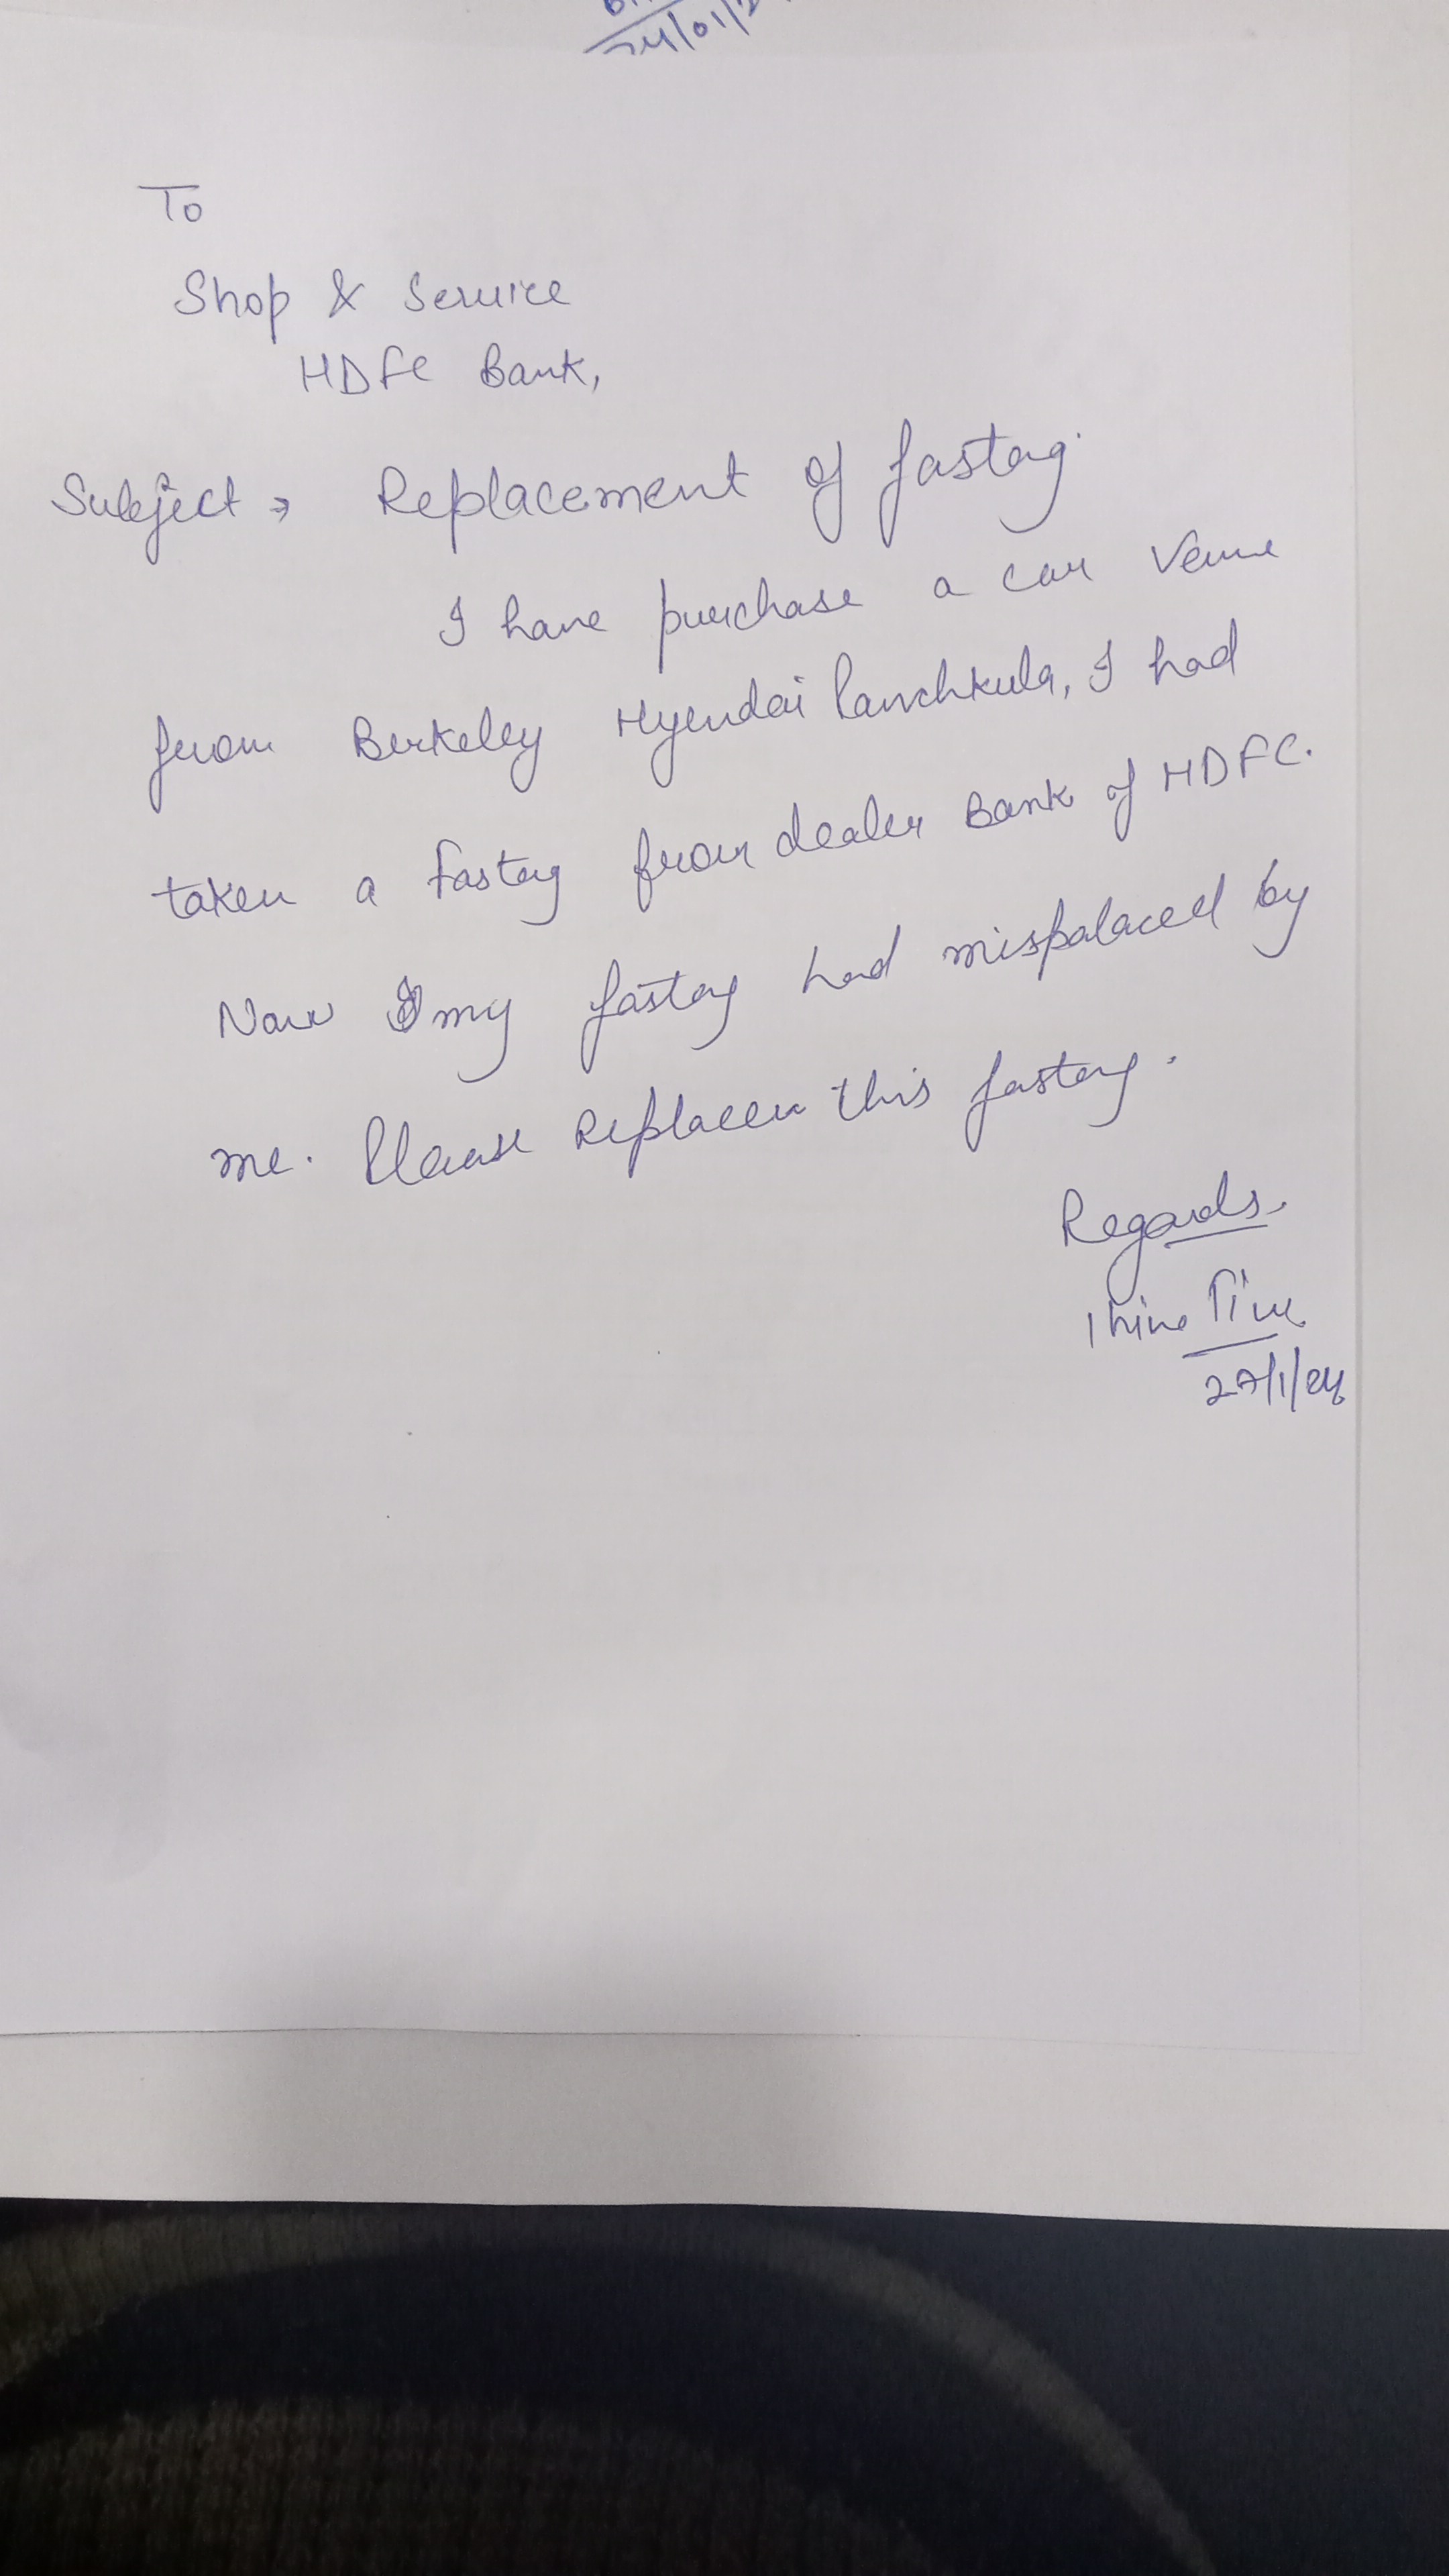 24/01/2
To
Shop & Service
HDFC Bank,
Subject → Replacement of fastag.
I have purchase a car Venue
from Berkeley Hyundai Panchkula, I had
taken a Fastag from dealer Bank of HDFC.
Now my fastag had mispalaced by
me. Please Replacen this fastag.
Regards,
27/1/24